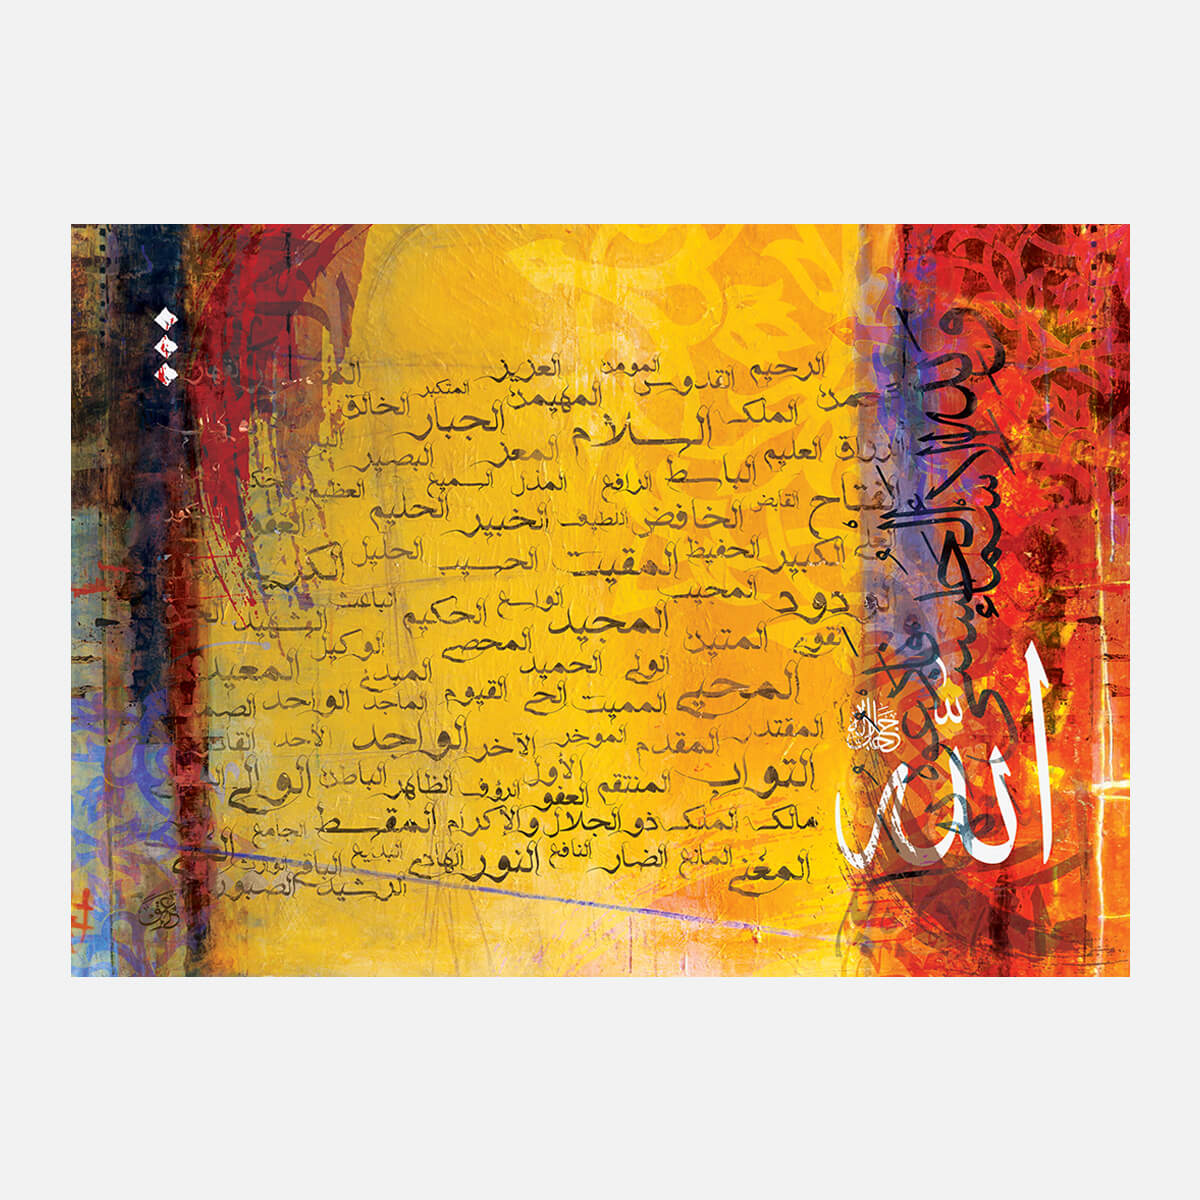 الرحيم القدوس المومن العزيز
الملك المهيمن المتكبر
السلام الجبار الخالق
العليم المعز البصير
الباسط الرافع المذل السميع العظيم
الفتاح القابض الخافض اللطيف الخبير الحليم
الكبير الحفيظ المقيت الحسيب الجليل الكريم
المجيب الواسع الباعث
المجيد الحكيم الشهيد
القوي المتين المحصي الوكيل
الولي الحميد المبدئ المعيد
المحيي المميت الحي القيوم الماجد الواحد
المقتدر المقدم الموخر الآخر الواجد الأحد
التواب المنتقم الأول العفو الرؤوف الظاهر الباطن الوالي
مالك الملك ذو الجلال والاكرام المقسط الجامع
المغني المانع الضار النافع النور الهادي البديع الباقي الوارث
الرشيد الصبور
ولله الأسماء الحسنى فادعوه
الله
جل جلاله